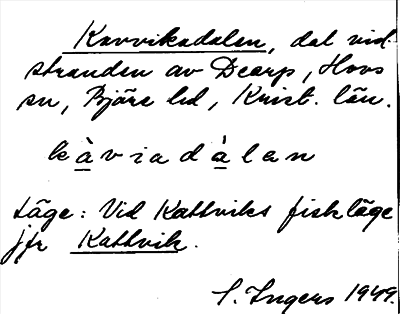 Kavvikadalen, dal vid
stranden av Dearp, Hovs
sn, Bjäre hd, Krist. län.
kàviadàlan
Läge: Vid Kattviks fiskläge
jfr Kattvik.
S. Ingers 1949.